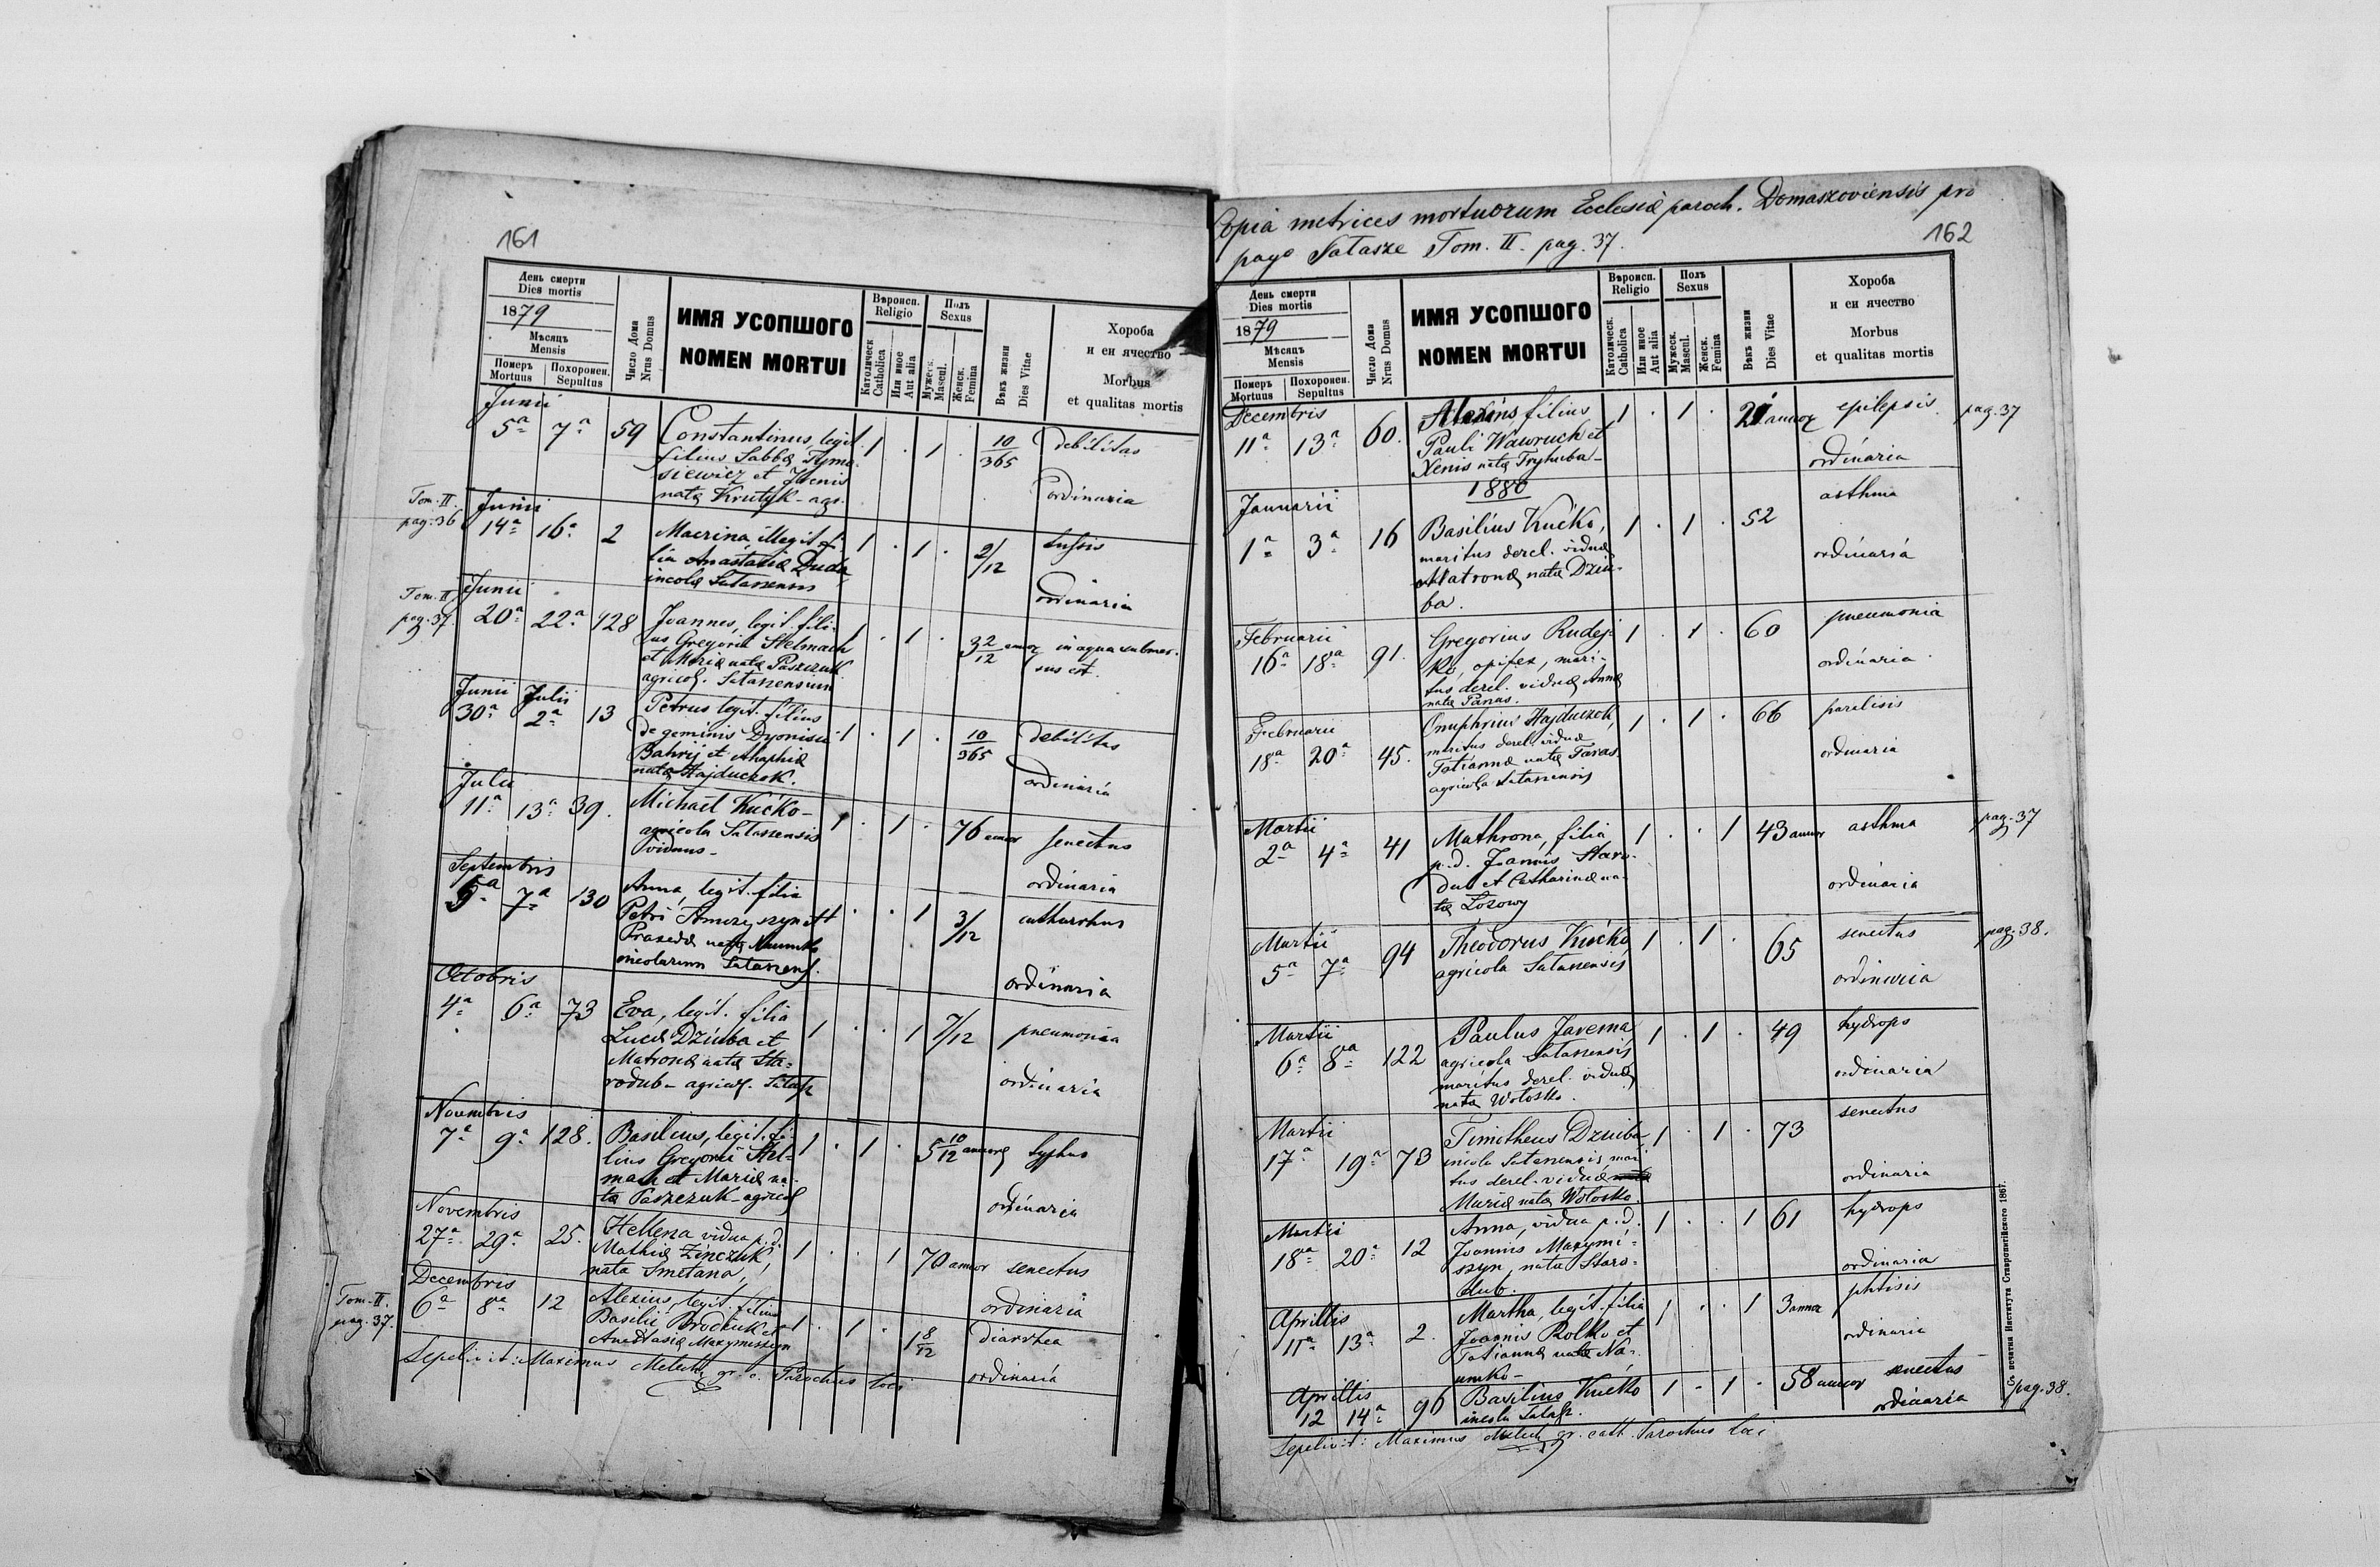 161
День смерти
Dies mortis
1879
Мѣсяць
Mensis
Померъ
Mortuus
Похоронен.
Sepultus
Число Дома
Nrus Domus
ИМЯ УСОПШОГО
NOMEN MORTUI
Вѣроисп.
Religio
Католическ
Catholica
Или иное
Aut alia
Полъ
Sexus
Мужеск.
Mascul.
Женск.
Femina
Вѣкъ жизни
Dies Vitae
Хороба
и еи ячество
Morbus
et qualitas mortis
Junii
5ª 7ª 59 Constantinus, legit. 1 . 1 . 10/365 debilitas
filius Sabbæ Tymo-
siewicz et Xenis
natæ Krutyk - agr. ordinaria
Tom. II.
pag. 36
Junii
14ª 16ª 2 Macrina illegit. fi- 1 . 1 . 2/12 tussis
lia Anastasiæ Duda
incolæ Sałaszensis ordinaria
Tom. II.
pag. 37.
Junii
20ª 22ª 128 Joannes, legit. fili- 1 . 1 . 3 2/12 annor in aqua submer-
us Gregorii Stelmach sus est.
et Mariæ natæ Paszczuk
agricol. Sałaszensium
Junii Julii
30ª 2ª 13 Petrus legit. filius 1 . 1 . 10/365 debilitas
de geminis Dyonisii
Bahrij et Ahaphiæ
natæ Hajduczok. ordinaria
Julii
11ª 13ª 39. Michaël Kućko - 1 . 1 . 76 annor senectus
agricola Sałaszensis
viduus - ordinaria
Septembris
5ª 7ª 130 Anna, legit. filia 1 . . 1 3/12 catharrhus
Petri et
Praxedæ natæ Naumko
incolarum Sałaszens. ordinaria
Octobris
4ª 6ª 73 Eva, legit. filia 1 . . 1 7/12 pneumonia
Lucæ Dziuba et
Matronæ natæ Sta-
rodub - agricol. Sałasz ordinaria
Novembris
7ª 9ª 128. Basilius, legit. fi- 1 . 1 . 5 10/12 annorq typhus
lius Gregorii Stel-
mach et Mariæ na-
tæ Paszczuk - agricol ordinaria
Novembris
27ª 29ª 25. Hellena vidua p.d. 1 . . 1 70 annor senectus
Mathiæ Zinczuk,
nata Smetana, ordinaria
Tom. II.
pag. 37.
Decembris
6ª 8ª 12 Alexius, legit. filius 1 . 1 . 1 8/12 diarrhea
Basilii Brodiuk et
Anastasiæ Maxymiszyn ordinaria
Sepelivit: Maximus Metech gr. c. Parochus loci
Copia metrices mortuorum Ecclesiæ paroch. Domaszoviensis pro
pago Sałasze Tom. II. pag. 37.
162
День смерти
Dies mortis
1879
Мѣсяць
Mensis
Померъ
Mortuus
Похоронен.
Sepultus
Число Дома
Nrus Domus
ИМЯ УСОПШОГО
NOMEN MORTUI
Вѣроисп.
Religio
Католическ.
Catholica
Или иное
Aut alia
Полъ
Sexus
Мужеск.
Mascul.
Женск.
Femina
Вѣкъ жизни
Dies Vitae
Хороба
и еи ячество
Morbus
et qualitas mortis
Decembris
11ª 13ª 60. Alexius, filius 1 . 1 . 21 annor epilepsis. pag. 37
Pauli Wawruch et
Xenis natæ Tryhuba - ordinaria
1880
Januarii
1ª 3ª 16 Basilius Kućko, 1 . 1 . 52 asthma
maritus derel. viduæ
Matronæ natæ Dziu-
ba. ordinaria
Februarii
16ª 18ª 91. Gregorius Rudej- 1 . 1 . 60 pneumonia
ko, opifex, mari-
tus derel. viduæ Annæ
natæ Panas. ordinaria
Februarii
18ª 20ª 45. Onuphrius Hajduczok, 1 . 1 . 66 paralisis
maritus derel. viduæ
Tatiannæ natæ Taras
agricola Sałaszensis ordinaria
Martii
2ª 4ª 41 Mathrona, filia 1 . . 1 43 annor asthma pag. 37
p.d. Joannis Staro-
dub et Catharinæ na-
tæ Łozowy ordinaria
Martii
5ª 7ª 94 Theodorus Kućko 1 . 1 . 65 senectus pag. 38.
agricola Sałaszensis ordinaria
Martii
6ª 8ª 122 Paulus Jarema, 1 . 1 . 49 hydrops
agricola Sałaszensis
maritus derel. viduæ
natæ Wołoszko. ordinaria
Martii
17ª 19ª 73 Timotheus Dziuba, 1 . 1 . 73 senectus
incola Sałaszensis mari
tus derel. viduæ
Mariæ natæ Wołoszko. ordinaria
Martii
18ª 20ª 12 Anna, vidua p.d. 1 . . 1 61 hydrops
Joannis Maxymi-
szyn, nata Staro-
dub. ordinaria
Aprillis
11ª 13ª 2. Martha, legit. filia 1 . . 1 3 annor phtisis
Joannis Rolko et
Tatiannæ natæ Na-
umko - ordinaria
Aprillis
12 14ª 96 Basilius Kućko 1 . 1 . 58 annor senectus pag. 38.
incola Sałasz. ordinaria
Sepelivit: Maximus Metech gr. cath. Parochus loci
Съ печатни Института Ставропигійского 1867.